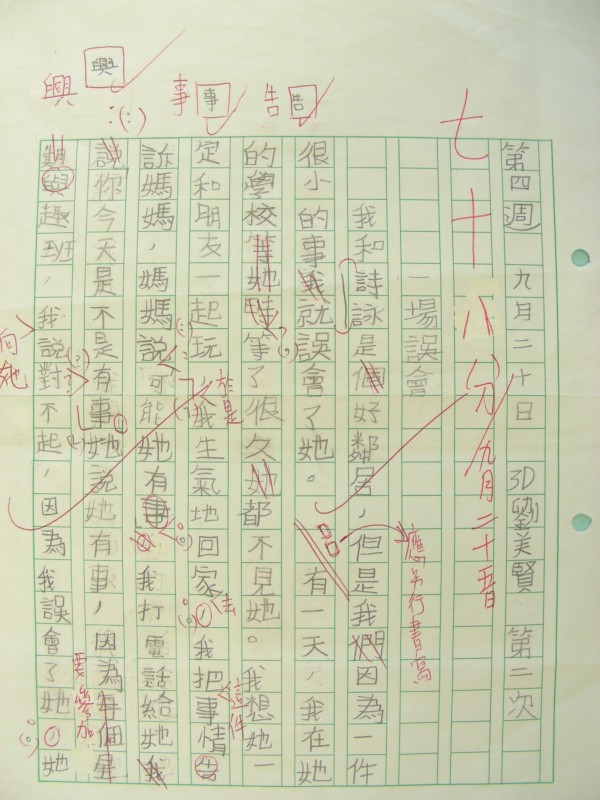 第四週 九月二十日 3D 劉美賢 第二次
七十八分 九月二十五日
一場誤會
我和詩詠是個好鄰居，但是我們因為一件
應另行書寫
很小的事我就誤會了她。有一天，我在她
的學校等她時等了很久她都不見她。我想她一
定和朋友一起玩，我生氣地回家，我把這件事情告
於是
去
訴媽媽，媽媽說可能她有事。我打電話給她我
說你今天是不是有事她說她有事，因為每個星
要參加
興趣班，我說對不起，因為我誤會了她，她
向她
告 告
事 事
興 興